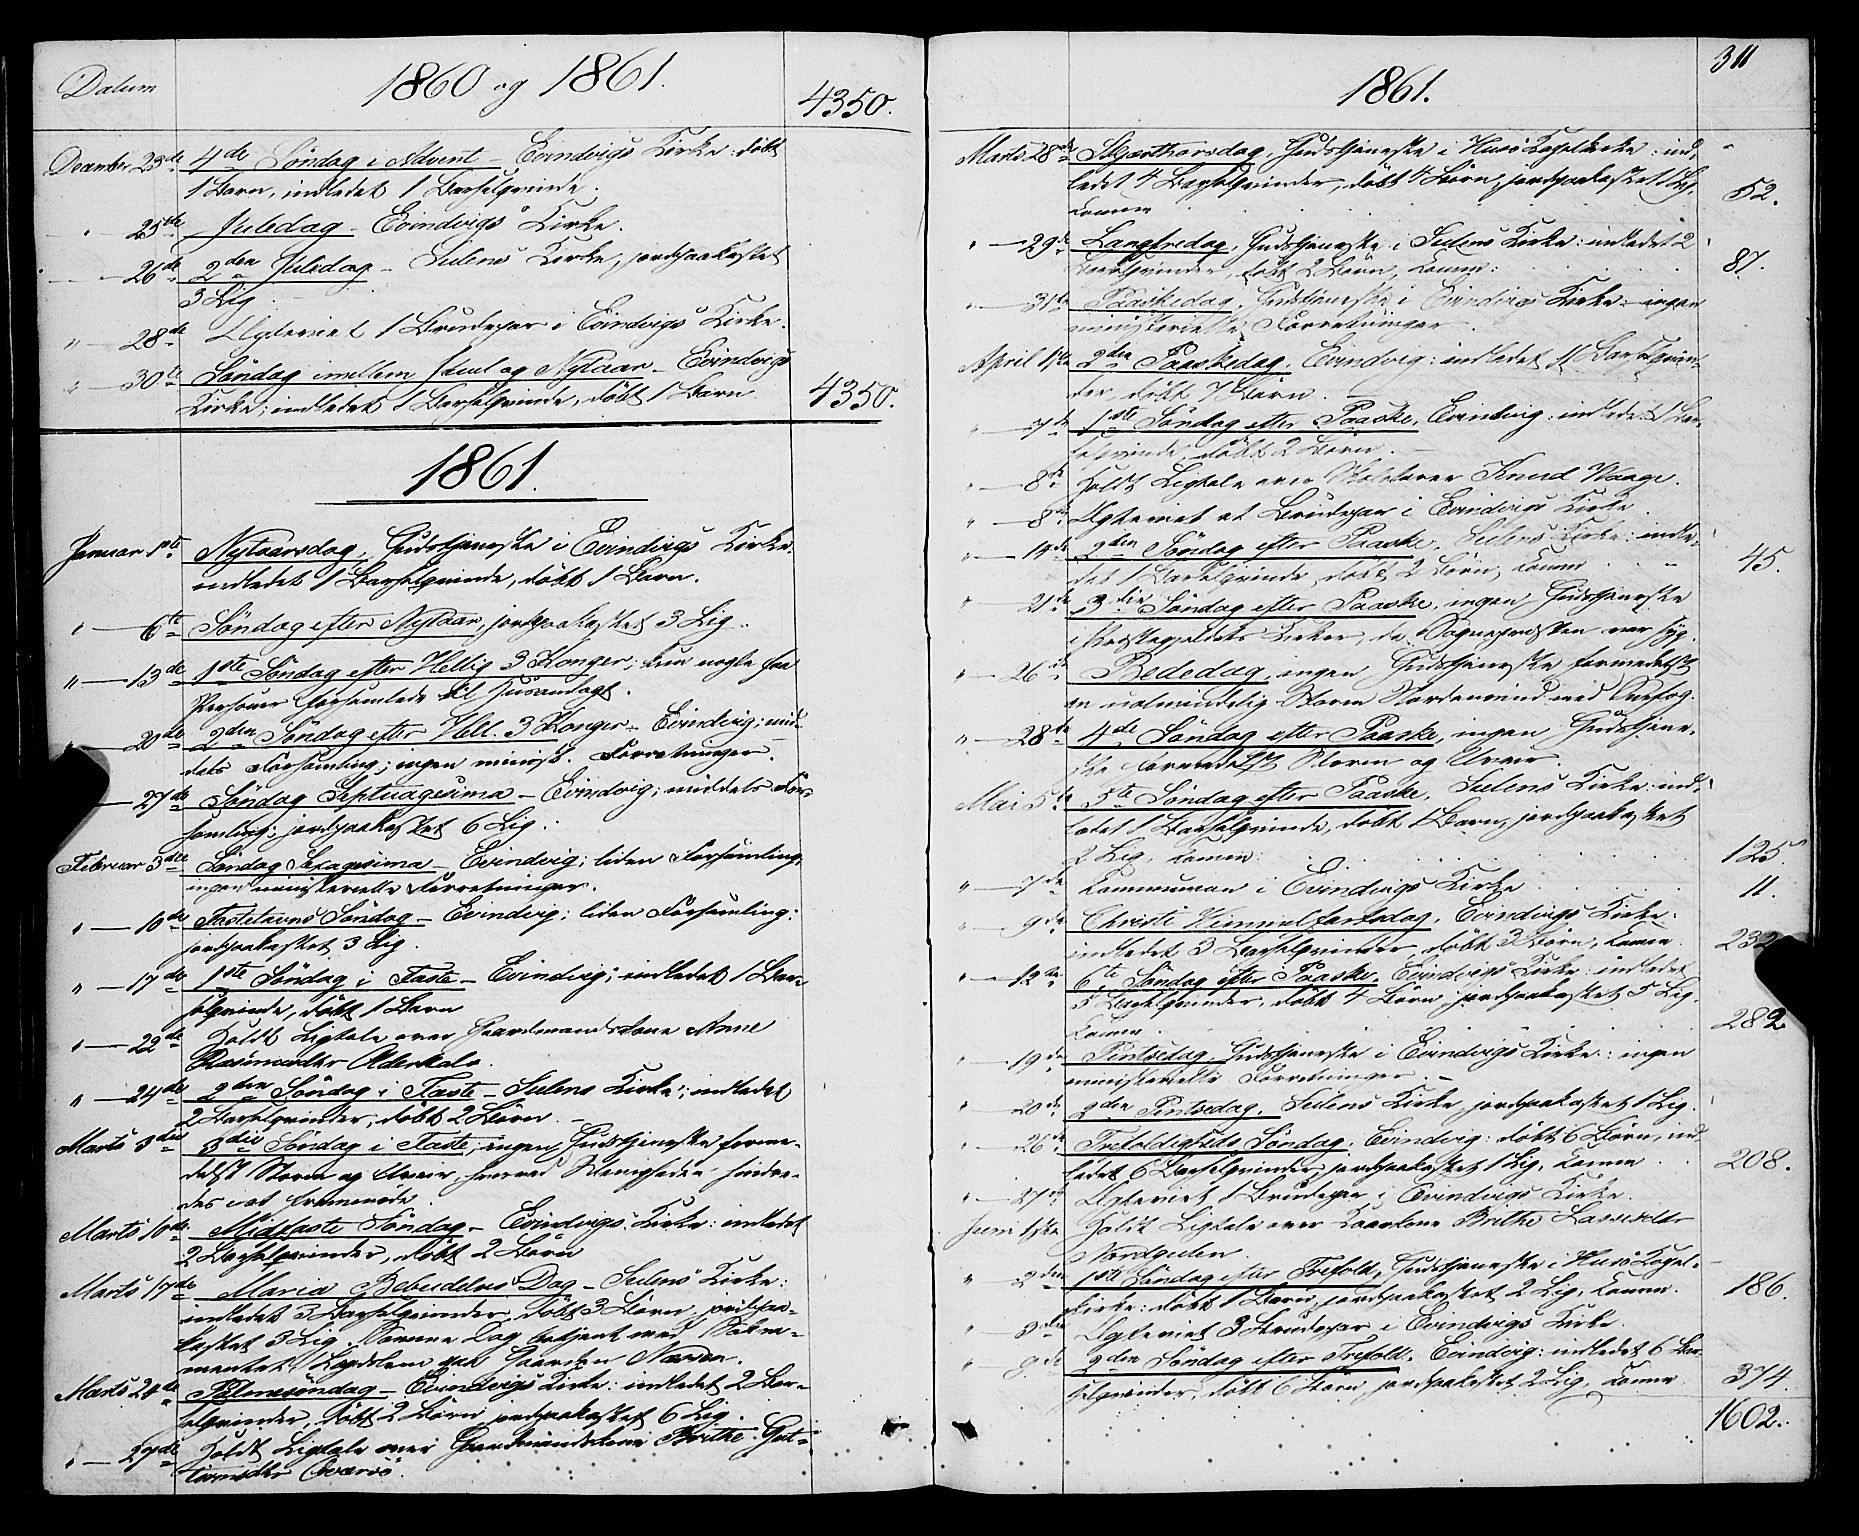 Datum
1860 og 1861.
4350.
December 23de 4de Söndag i Advent - Evindvigs Kirke: döbt
1 Barn, indledet 1 Barselqvinde.
" 25de Juledag. Evindvigs Kirke.
" 26de 2den Juledag - Eulens Kirke, jordpaakastet
3 Lig.
" 28de Egteviet 1 Brudepar i Evindvigs Kirke.
" 30te Söndag imellem Juul og Nytaar - Evindvigs
Kirke; indledet 1 Barselqvinde, döbt 1 Barn 4350.
1861.
Januar 1ste Nytaarsdag, Gudstjeneste i Evindvigs Kirke.
indledet 1 Barselqvinde, döbt 1 Barn.
" 6te Söndag efter Nytaar, jordpaakastet 3 Lig.
" 13de 1ste Söndag efter Hellig 3 Konger; kun nogle faa
Personer forsamlede til Husandagt.
" 20de 2den Söndag efter Hell. 3 Konger - Evindvig; mid-
dels Forsamling; ingen minist. Forretninger.
27de Söndag Septuagesima - Evindvig; middels For-
samling; jordpaakastet 6 Lig.
Februar 3die Söndag Sexagesima - Evindvig; liden Forsamling;
ingen ministerielle Forretninger.
" 10de Fastelavns Söndag - Evindvig; liden Forsamling:
jordpaakastet 3 Lig.
" 17de 1ste Söndag i Faste - Evindvig; indledet 1 Bar-
selqvinde, döbt 1 Barn
" 22de Holdt Ligtale over Gaardmandskone Anne
Rasmusdtr
" 24de 2den Söndag i Faste - Eulens Kirke; indledet
2 Barselqvinder, döbt 2 Börn.
Marts 3die 3die Söndag i Faste; ingen Gudstjeneste forme-
delst Storm og Uveir, hvorved Menigheden hindre-
des i at fremmöde.
Marts 10de Midfaste Söndag - Evindvigs Kirke: indledet
2 Barselqvinder, döbt 2 Börn
Marts 17de Maria Bebudelses Dag - Eulens Kirke:
indledet 3 Barselqvinder, döbt 3 Börn, jordpaa-
kastet 3 Lig. Samme Dag betjent med Sakra-
mentet 1 paa Gaarden
Marts 24de Palmesöndag - Evindvigs Kirke: indledet 2 Bar-
selqvinder, döbt 2 Börn, jordpaakastet 6 Lig.
" 27de Holdt Ligtale over Gaardmandskone Brithe Gut-
tormsdtr
311
1861.
Marts 28de Skjærthorsdag, Gudstjeneste i Husö Kapelkirke: ind-
ledet 4 Barselqvinder, döbt 4 Börn, jordpaakastet 1 Lig,
Comm 52.
" 29de Langfredag, Gudstjeneste i Eulens Kirke: indledet 2
Barselqvinder, döbt 2 Börn, Comm: 87.
" 31te Paaskedag, Gudstjeneste i Evindvigs Kirke: ingen
ministerielle Forretninger.
April 1ste 2den Paaskedag. Evindvig: indledet Barselqvin-
der, döbt 7 Börn.
" 7de 1ste Söndag efter Paaske, Evindvig: indledet 1 Bar-
selqvinde, döbt 2 Börn.
" 8de Holdt Ligtale over Knud Waage.
" 8de Egteviet et Brudepar i Evindvigs Kirke.
" 14de 2den Söndag efter Paaske. Eulens Kirke: indle-
det 1 Barselqvinde, döbt 2 Börn, Comm 45.
" 21de 3die Söndag efter Paaske, ingen Gudstjeneste
i Præstegjeldets Kirker, da Sognepræsten var syg.
" 26de Bededag, ingen Gudstjeneste formedelst
en ualmindelig Storm Nordenvind med Snefog.
" 28de 4de Söndag efter Paaske, ingen Gudstjene-
ste formedelst Storm og Uveir.
Mai 5te 5te Söndag efter Paaske, Eulens Kirke: ind-
ledet 1 Barselqvinde, döbt 1 Barn, jordpaakastet
2 Lig, Comm: 125
" 7de Communion i Evindvigs Kirke 11.
9de Christi Himmelfartsdag, Evindvigs Kirke:
indledet 3 Barselqvinder, döbt 3 Börn, Comm. 232
" 12te 6te Söndag efter Paaske. Evindvigs Kirke: indledet
5 Barselqvinder, döbt 4 Börn, jordpaakastet 5 Lig,
Comm. 282
" 19de Pintsedag, Gudstjeneste i Evindvigs Kirke: ingen
ministerielle Forretninger.
" 20de 2den Pintsedag, Eulens Kirke, jordpaakastet 1 Lig.
" 26de Trefoldigheds Söndag, Evindvig: döbt 6 Börn, ind-
ledet 6 Barselqvinder, jordpaakastet 1 Lig, Comm 208.
" 27de Egteviet 1 Brudepar i Evindvigs Kirke.
Juni 1ste Holdt Ligtale over Brithe Lassesdtr
Nordgulen.
" 2den 1ste Söndag efter Trefold., Gudstjeneste i Husö Kapel-
kirke: döbt 1 Barn, jordpaakastet 2 Lig, Comm. 186.
" 8de Egteviet 3 Brudepar i Evindvigs Kirke.
" 9de 2den Söndag efter Trefold. Evindvig: indledet 6 Bar-
selqvinder, döbt 6 Börn, jordpaakastet 2 Lig, Comm 374.
1602.